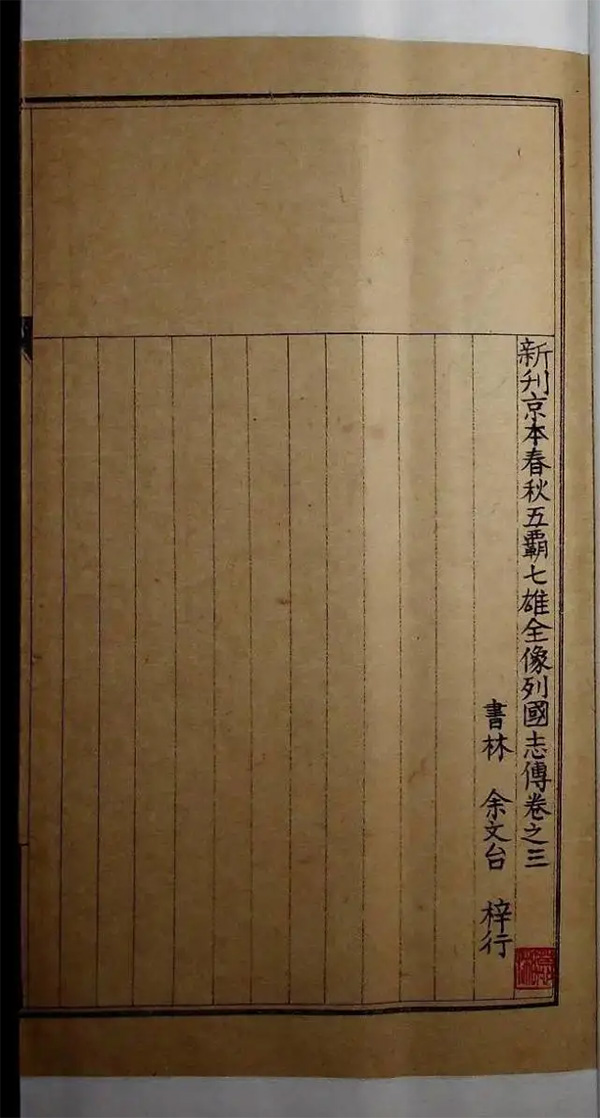 新刋京本春秋五霸七雄全像列國志傳卷之三
書林 余文台 梓行